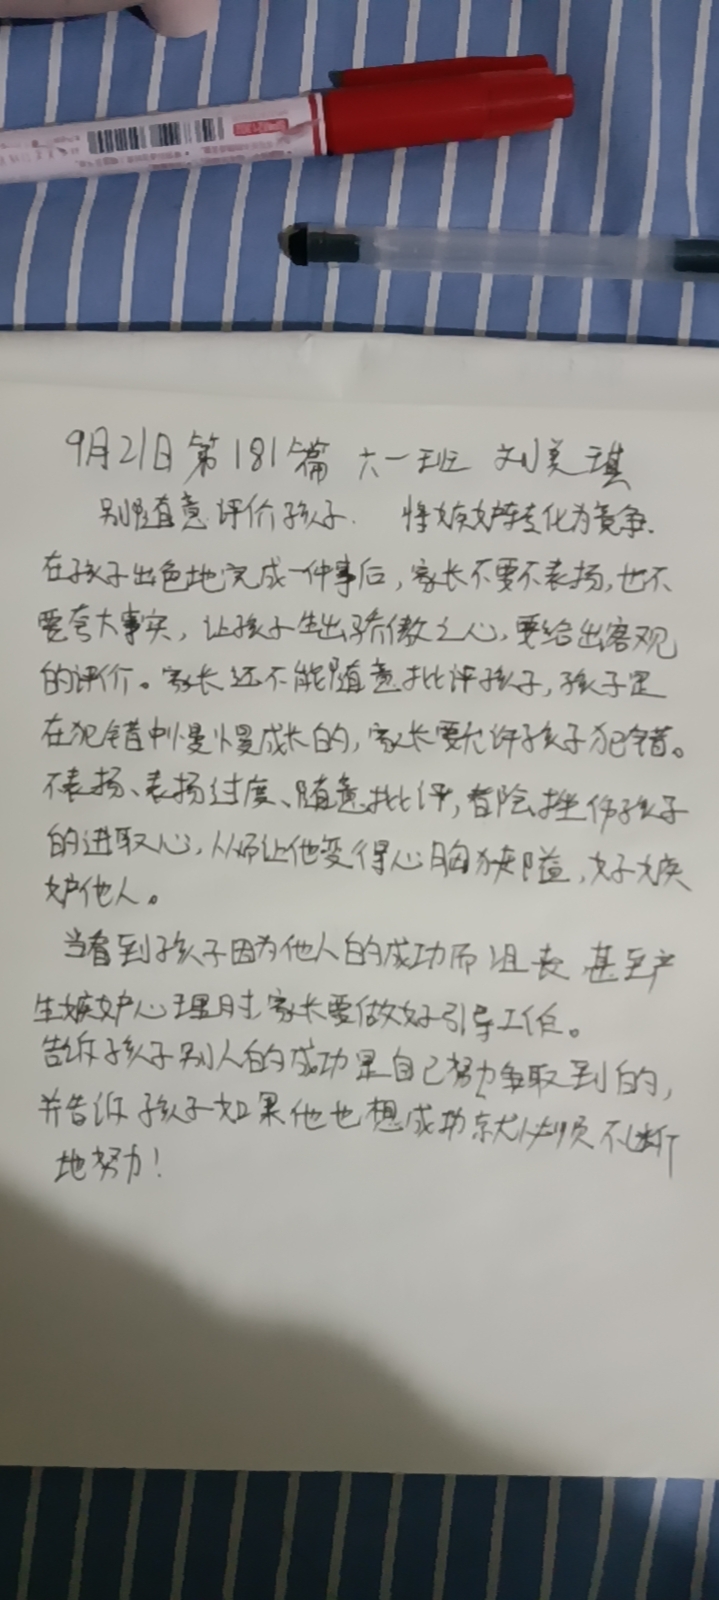 9月21日第181篇 六一班 刘美琪
别随意评价孩子. 将嫉妒转化为竞争.
在孩子出色地完成一件事后，家长不要不表扬，也不
要夸大事实，让孩子生出骄傲之心，要给出客观
的评价。家长还不能随意批评孩子，孩子是
在犯错中慢慢成长的，家长要允许孩子犯错。
不表扬、表扬过度、随意批评，都会挫伤孩子
的进取心，从而让他变得心胸狭隘，好嫉
妒他人。
当看到孩子因为他人的成功而沮丧 甚至产
生嫉妒心理时，家长要做好引导工作。
告诉孩子别人的成功是自己努力争取到的，
并告诉孩子如果他也想成功就必须不断
地努力！